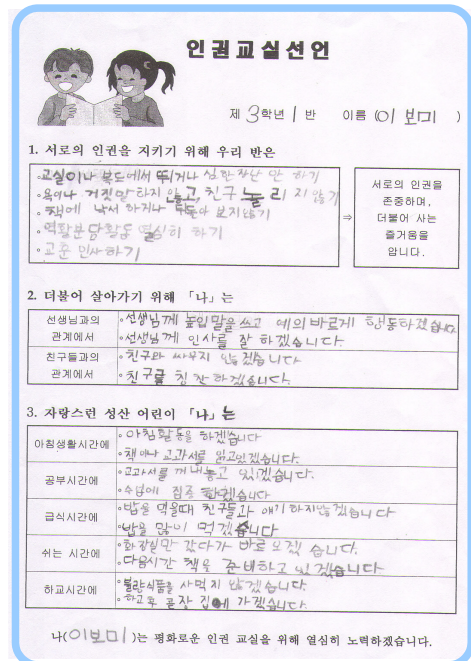 인권교실선언
제 3학년 1 반 이름 (이 보미)
1. 서로의 인권을 지키기 위해 우리 반은
◦교실이나 복도에서 뛰거나 심한 장난 안 하기
◦욕이나 거짓말하지 않고, 친구 놀리지 않기
◦책에 낙서 하거나 보지않기
◦역활분담활동 열심히 하기
◦교훈 인사하기
⇒
서로의 인권을
존중하며,
더불어 사는
즐거움을
압니다.
2. 더불어 살아가기 위해 「나」는
선생님과의
관계에서
◦선생님께 높임말을 쓰고 예의바르게 행동하겠습니다.
◦선생님께 인사를 잘 하겠습니다.
친구들과의
관계에서
◦친구와 싸우지 않겠습니다
◦친구를 칭찬하겠습니다.
3. 자랑스런 성산 어린이 「나」는
아침생활시간에
◦아침활동을 하겠습니다
◦책이나 교과서를 읽고있겠습니다.
공부시간에
◦교과서를 꺼내놓고 있겠습니다.
◦수업에 집중 하겠습니다
급식시간에
◦밥을 먹을때 친구들과 얘기하지않겠습니다
◦밥을 많이 먹겠습니다
쉬는 시간에
◦화장실만 갔다가 바로 오겠습니다.
◦다음시간 책을 준비하고 있겠습니다.
하교시간에
◦불량식품을 사먹지 않겠습니다.
◦하교 후 곧장 집에 가겠습니다.
나(이보미)는 평화로운 인권 교실을 위해 열심히 노력하겠습니다.